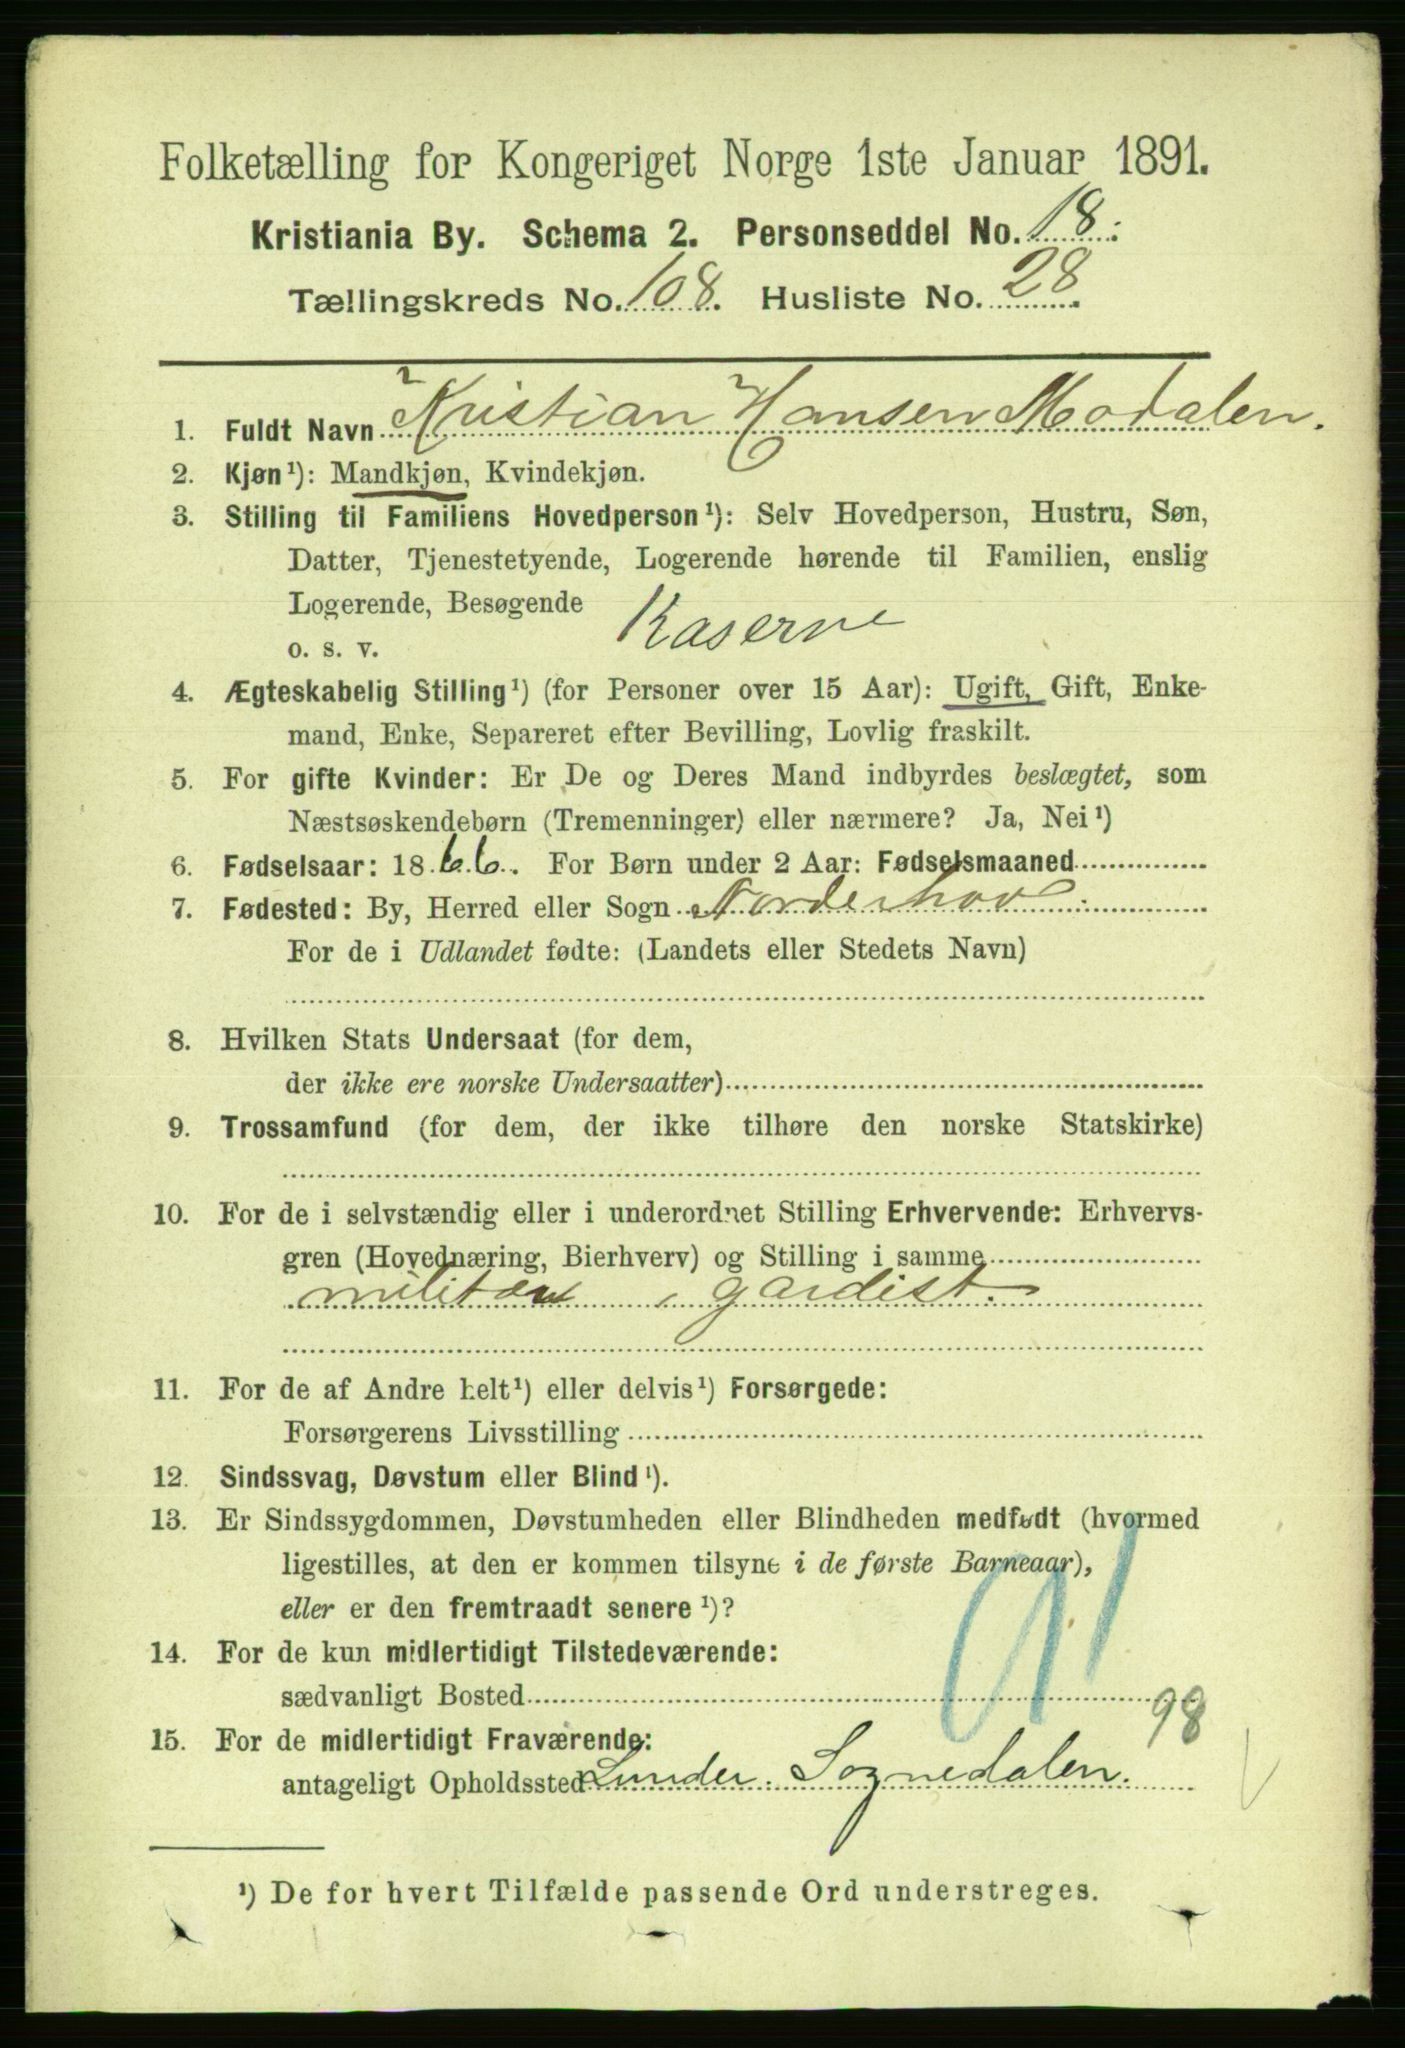 Folketælling for Kongeriget Norge 1ste Januar 1891.
Kristiania By. Schema 2. Personseddel No. 18.
Tællingskreds No. 108. Husliste No. 28.
1. Fuldt Navn Kristian Hansen Modalen.
2. Kjøn¹): Mandkjøn, Kvindekjøn.
3. Stilling til Familiens Hovedperson¹): Selv Hovedperson, Hustru, Søn,
Datter, Tjenestetyende, Logerende hørende til Familien, enslig
Logerende, Besøgende
o. s. v. Kaserne
4. Ægteskabelig Stilling¹) (for Personer over 15 Aar): Ugift, Gift, Enke-
mand, Enke, Separeret efter Bevilling, Lovlig fraskilt.
5. For gifte Kvinder: Er De og Deres Mand indbyrdes beslægtet, som
Næstsøskendebørn (Tremenninger) eller nærmere? Ja, Nei¹)
6. Fødselsaar: 1866. For Børn under 2 Aar: Fødselsmaaned
7. Fødested: By, Herred eller Sogn Norderhov
For de i Udlandet fødte: (Landets eller Stedets Navn)
8. Hvilken Stats Undersaat (for dem,
der ikke ere norske Undersaatter)
9. Trossamfund (for dem, der ikke tilhøre den norske Statskirke)
10. For de i selvstændig eller i underordnet Stilling Erhvervende: Erhvervs-
gren (Hovednæring, Bierhverv) og Stilling i samme
militær, gardist.
11. For de af Andre helt¹) eller delvis¹) Forsørgede:
Forsørgerens Livsstilling
12. Sindssvag, Døvstum eller Blind¹).
13. Er Sindssygdommen, Døvstumheden eller Blindheden medfødt (hvormed
ligestilles, at den er kommen tilsyne i de første Barneaar),
eller er den fremtraadt senere¹)?
91
14. For de kun midlertidigt Tilstedeværende:
sædvanligt Bosted
98
15. For de midlertidigt Fraværende:
antageligt Opholdssted Lunder. Sognedalen.
¹) De for hvert Tilfælde passende Ord understreges.